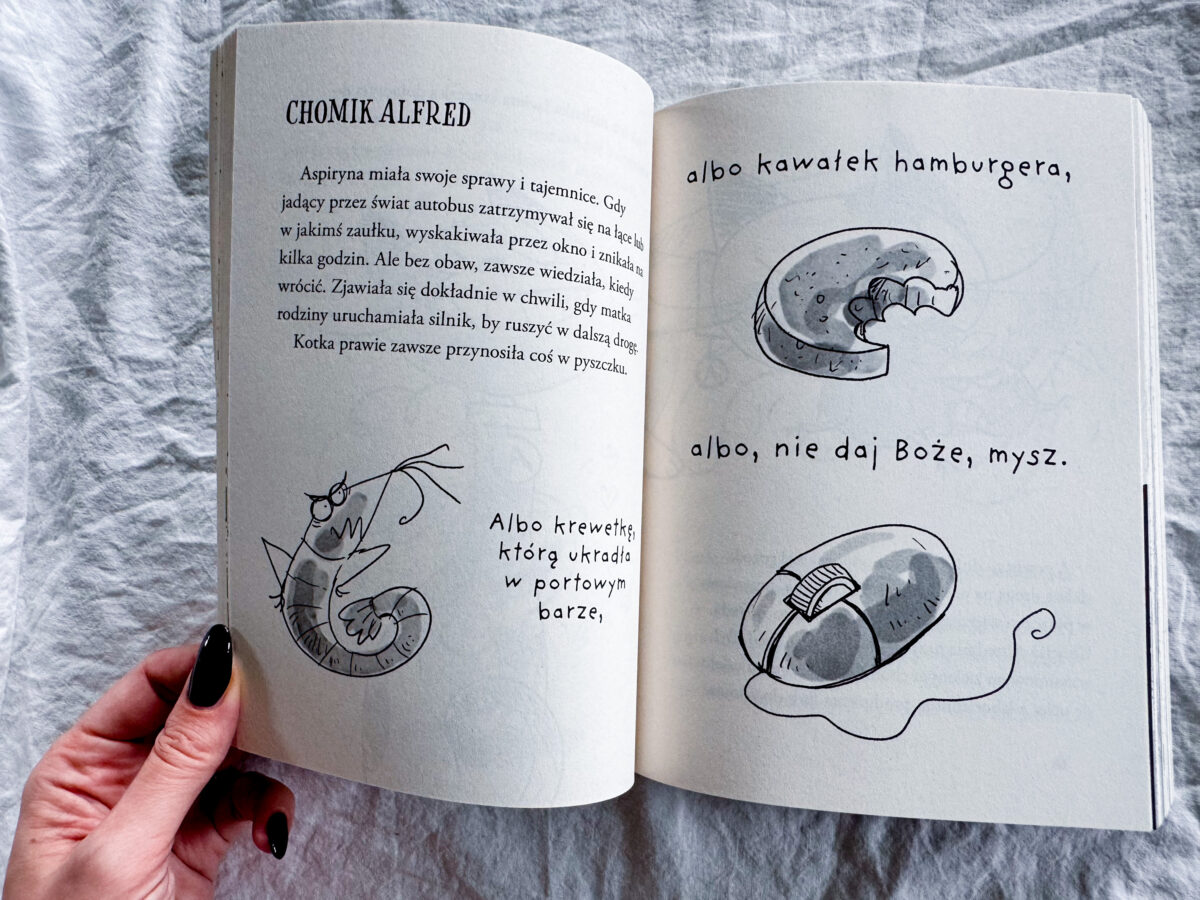 CHOMIK ALFRED
Aspiryna miała swoje sprawy i tajemnice. Gdy
jadący przez świat autobus zatrzymywał się na łące lub
w jakimś zaułku, wyskakiwała przez okno i znikała na
kilka godzin. Ale bez obaw, zawsze wiedziała, kiedy
wrócić. Zjawiała się dokładnie w chwili, gdy matka
rodziny uruchamiała silnik, by ruszyć w dalszą drogę.
Kotka prawie zawsze przynosiła coś w pyszczku.
Albo krewetkę,
którą ukradła
w portowym
barze,
albo kawałek hamburgera,
albo, nie daj Boże, mysz.